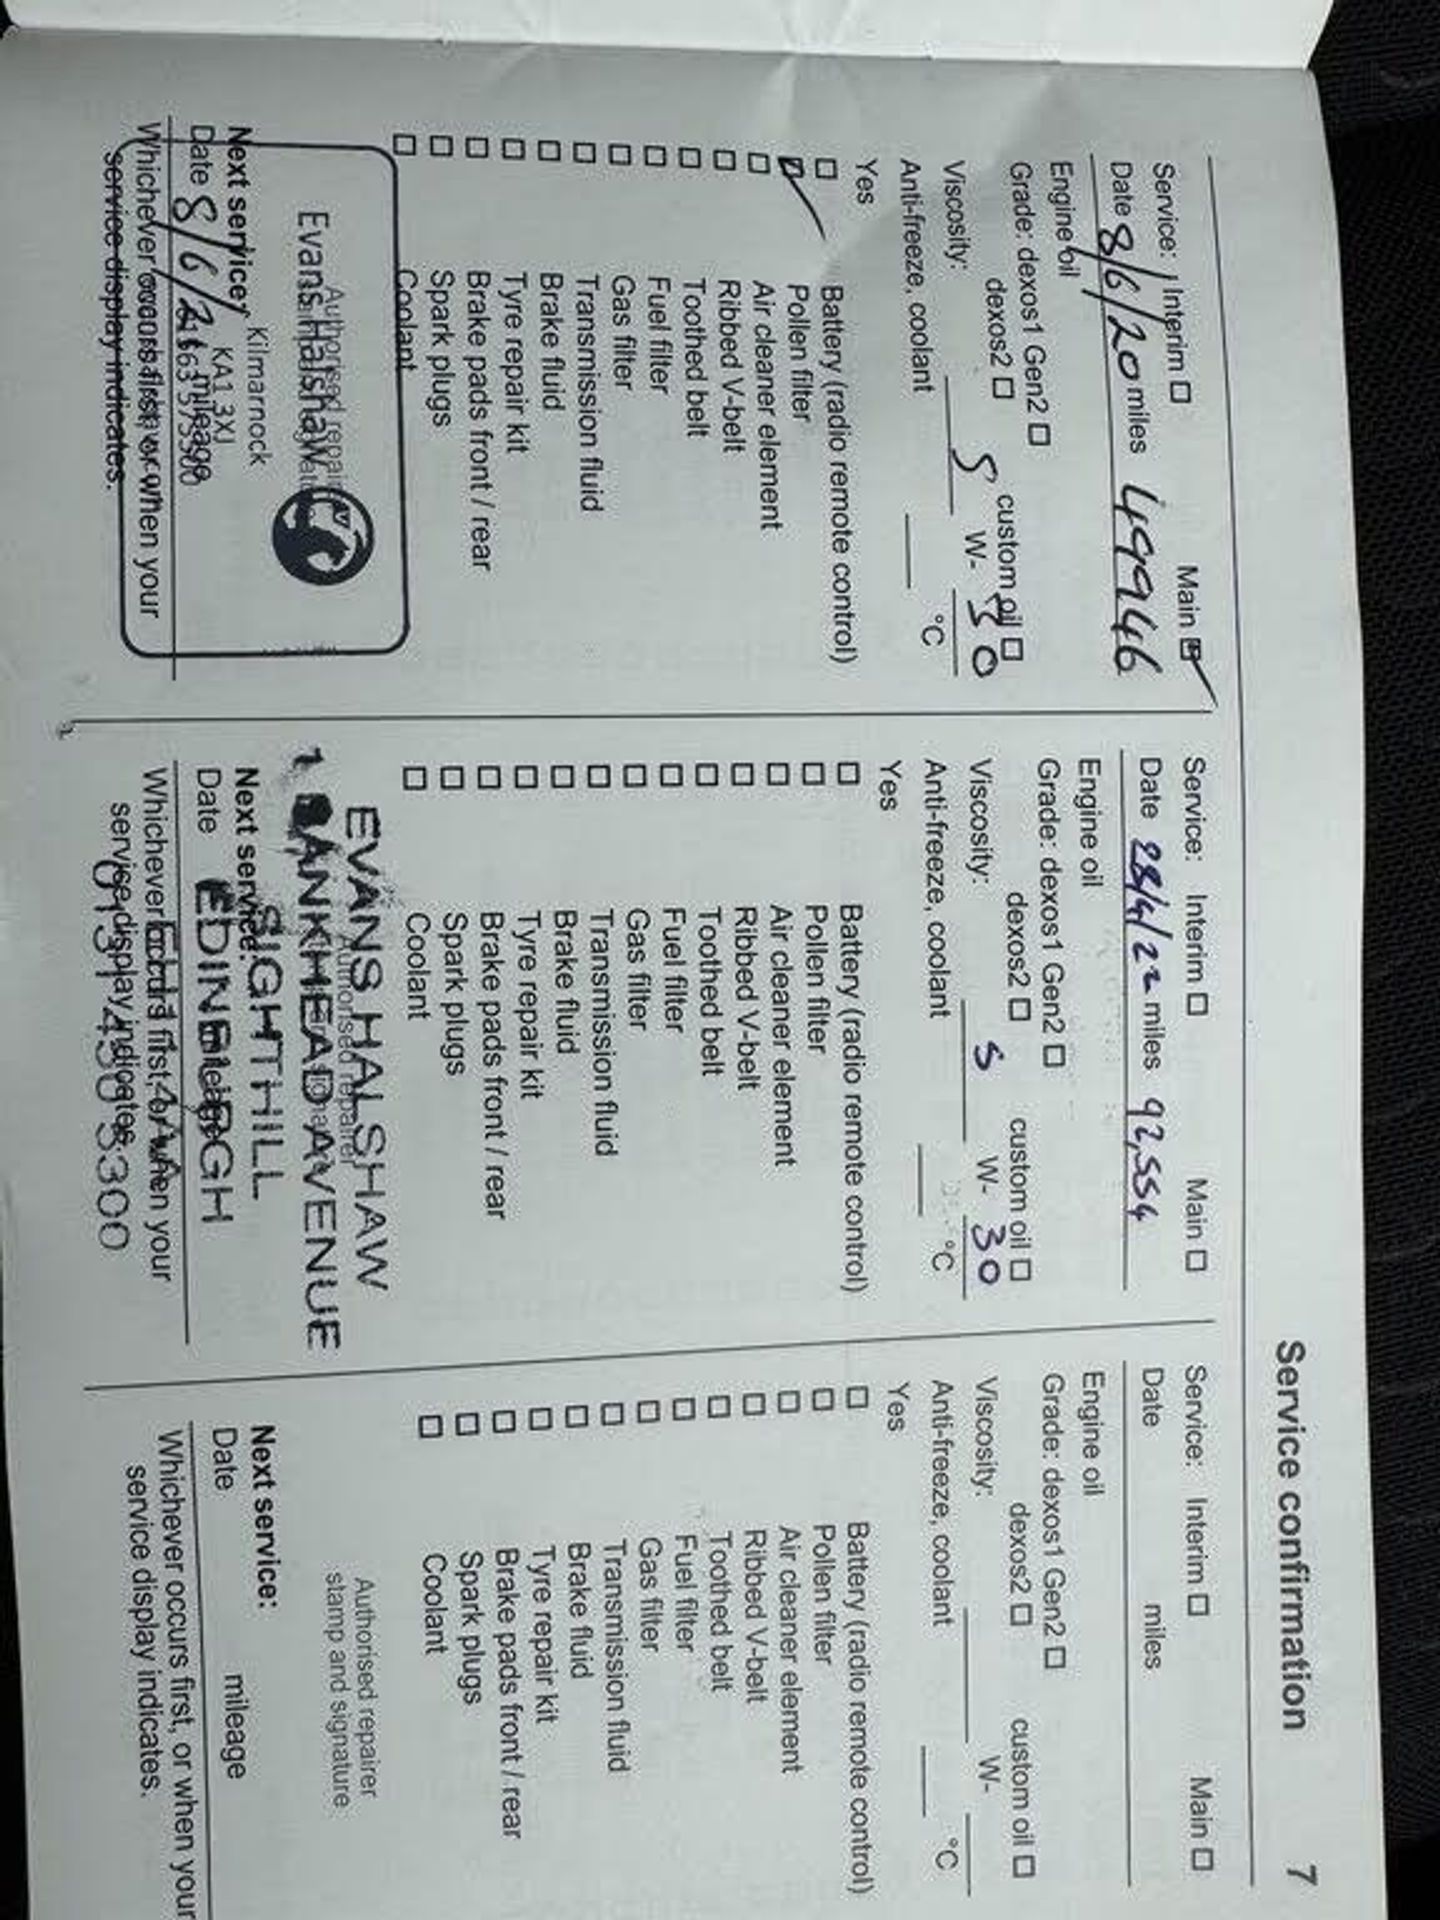 Service confirmation 7
Service: Interim ☐ Main ☑
Date 8/6/20 miles 49946
Engine oil
Grade: dexos1 Gen2 ☐
dexos2 ☐ custom oil ☐
Viscosity: 5 W- 30
Anti-freeze, coolant °C
Yes
☐ Battery (radio remote control)
☑ Pollen filter
☐ Air cleaner element
☐ Ribbed V-belt
☐ Toothed belt
☐ Fuel filter
☐ Gas filter
☐ Transmission fluid
☐ Brake fluid
☐ Tyre repair kit
☐ Brake pads front / rear
☐ Spark plugs
☐ Coolant
Authorised repairer
Evans Halshaw
Kilmarnock
KA1 3XJ
Next service:
Date 8/6/21 mileage
Whichever occurs first, or when your
service display indicates.
Service: Interim ☐ Main ☐
Date 28/4/22 miles 92,554
Engine oil
Grade: dexos1 Gen2 ☐
dexos2 ☐ custom oil ☐
Viscosity: 5 W- 30
Anti-freeze, coolant °C
Yes
☐ Battery (radio remote control)
☐ Pollen filter
☐ Air cleaner element
☐ Ribbed V-belt
☐ Toothed belt
☐ Fuel filter
☐ Gas filter
☐ Transmission fluid
☐ Brake fluid
☐ Tyre repair kit
☐ Brake pads front / rear
☐ Spark plugs
☐ Coolant
Authorised repairer
EVANS HALSHAW
BANKHEAD AVENUE
SIGHTHILL
EDINBURGH
Next service:
Date mileage
Whichever occurs first, or when your
service display indicates.
Service: Interim ☐ Main ☐
Date miles
Engine oil
Grade: dexos1 Gen2 ☐
dexos2 ☐ custom oil ☐
Viscosity: W-
Anti-freeze, coolant °C
Yes
☐ Battery (radio remote control)
☐ Pollen filter
☐ Air cleaner element
☐ Ribbed V-belt
☐ Toothed belt
☐ Fuel filter
☐ Gas filter
☐ Transmission fluid
☐ Brake fluid
☐ Tyre repair kit
☐ Brake pads front / rear
☐ Spark plugs
☐ Coolant
Authorised repairer
stamp and signature
Next service:
Date mileage
Whichever occurs first, or when your
service display indicates.